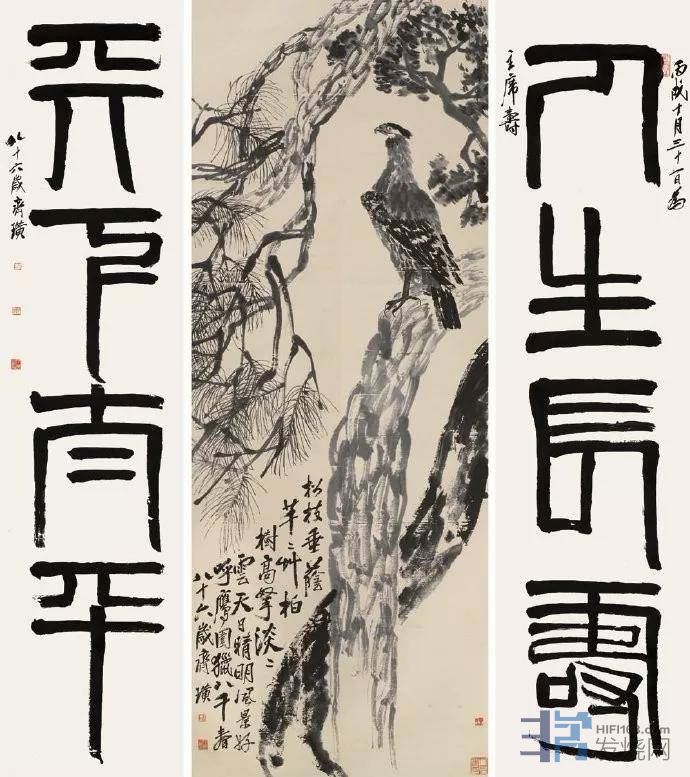 丙戌十月三十一日為
主席壽
人生長壽
松枝垂蔭
芊〻艸柏
樹高擎淡〻
雲天日晴明風景好
呼鷹圍獵八千春
八十六歲齊璜
天下太平
八十六歲齊璜
HIFI168.com
发烧网